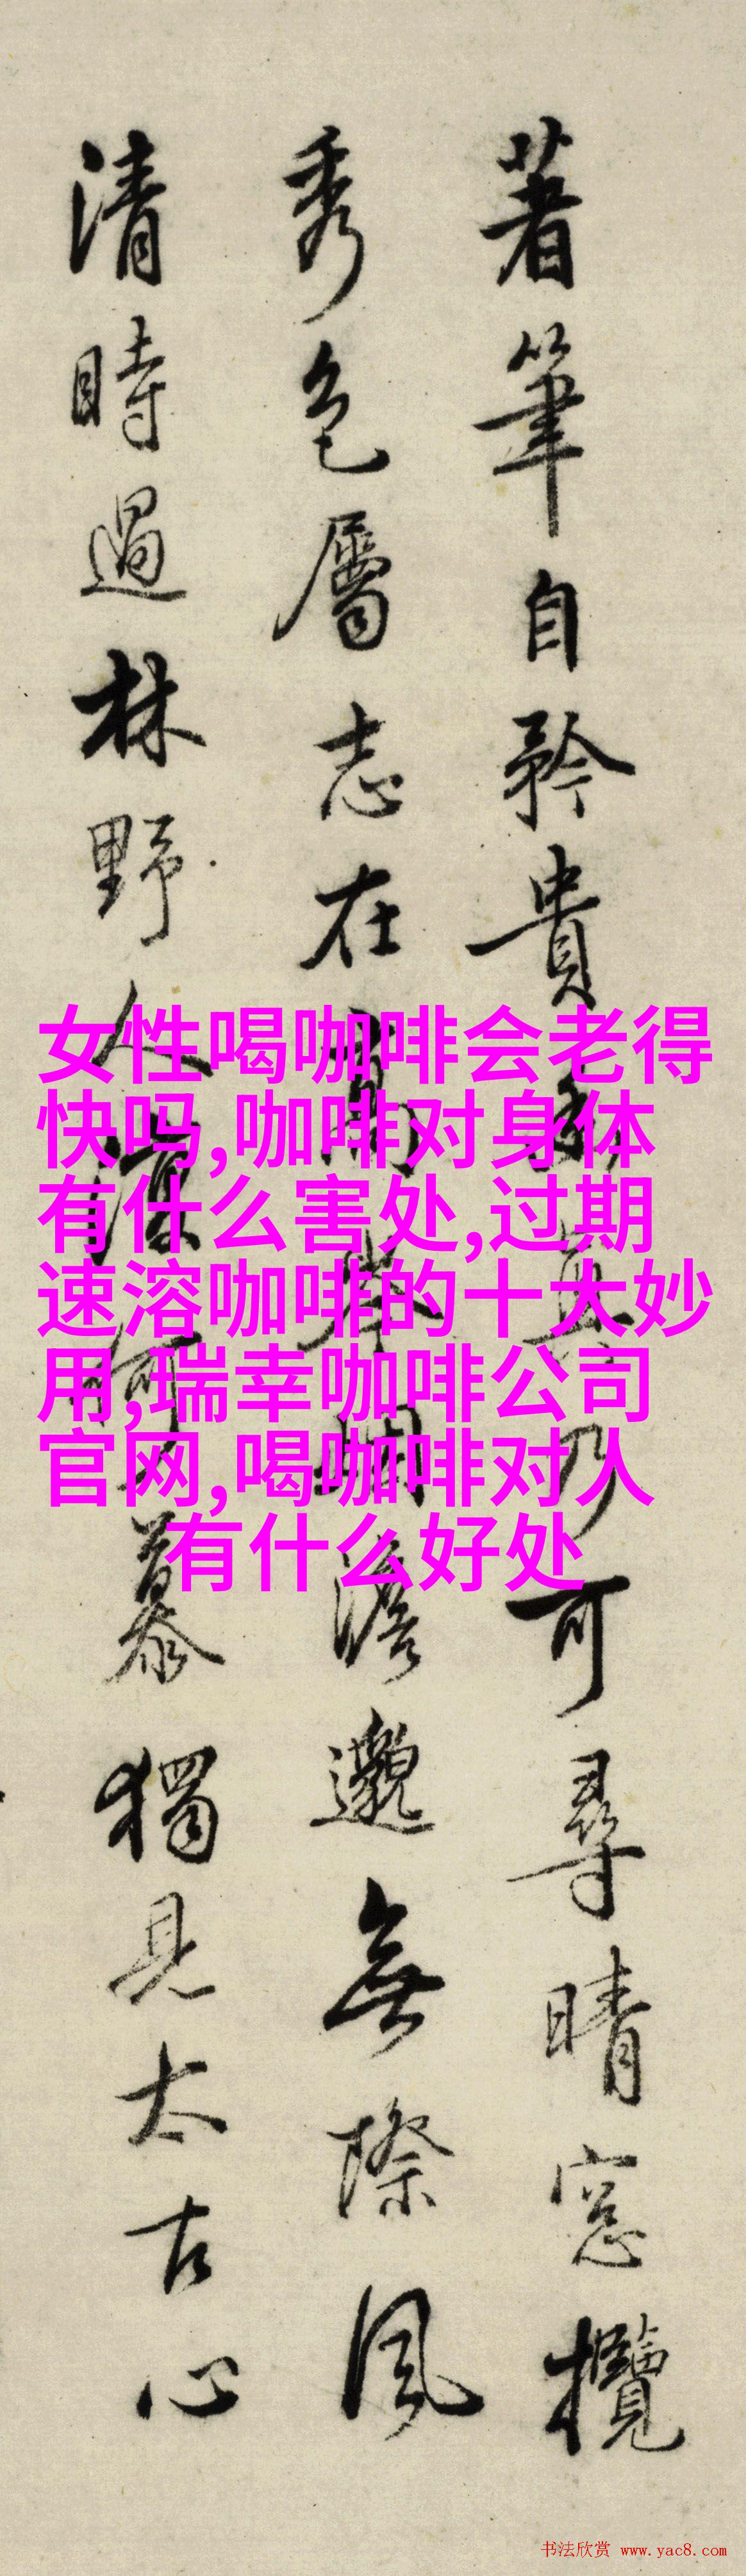 著筆自矜貴 乃可尋晴窓攬
秀色屬志在 澹邈無際風
清時過林野人深 慕獨見太古心
女性喝咖啡会老得
快吗,咖啡对身体
有什么害处,过期
速溶咖啡的十大妙
用,瑞幸咖啡公司
官网,喝咖啡对人
有什么好处
书法欣赏 www.yac8.com